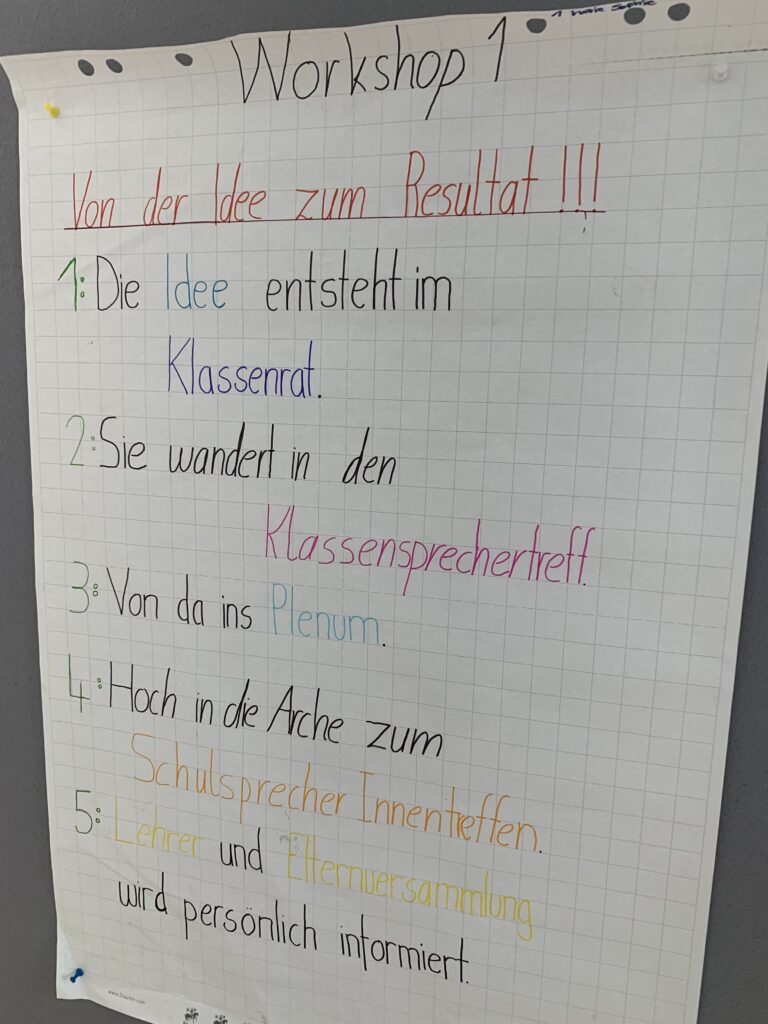 Workshop 1
Von der Idee zum Resultat!!!
1: Die Idee entsteht im
Klassenrat.
2: Sie wandert in den
Klassensprechertreff.
3: Von da ins Plenum.
4: Hoch in die Arche zum
Schulsprecher Innentreffen.
5: Lehrer und Elternversammlung
wird persönlich informiert.